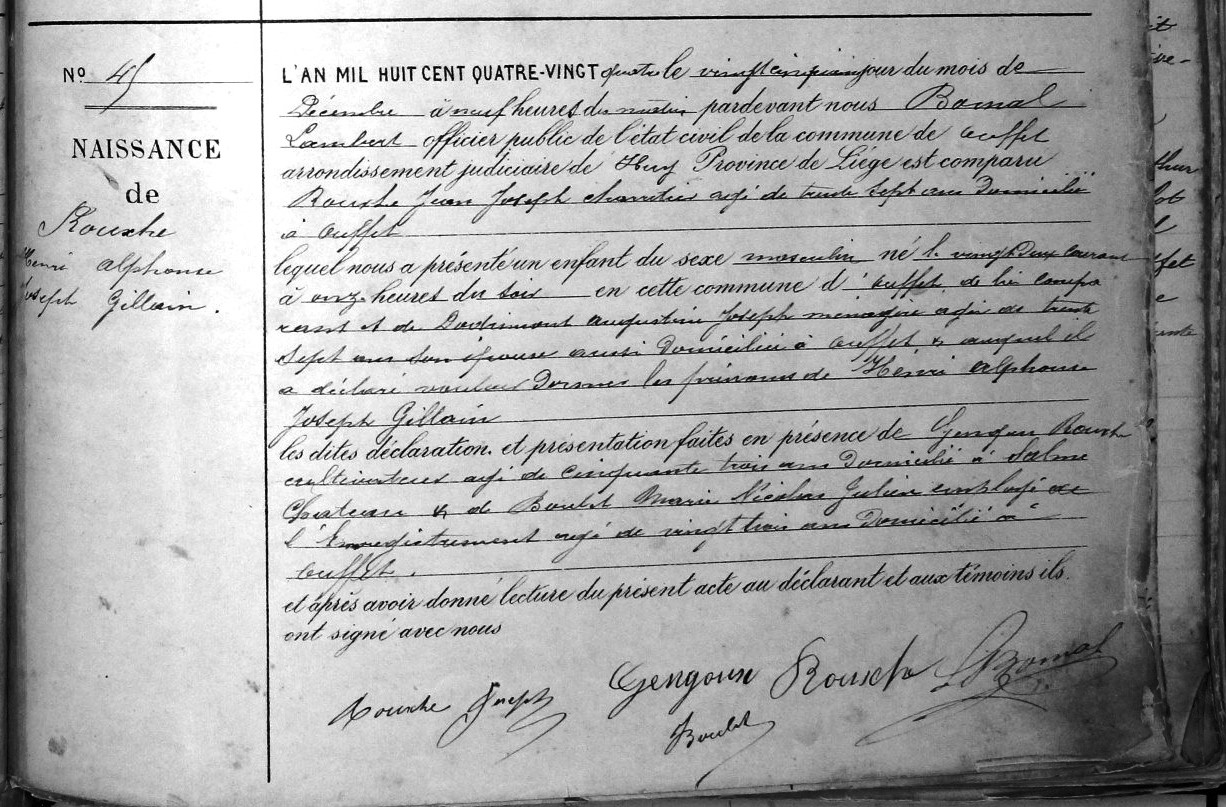 Nº 45
NAISSANCE
de
Rouxhe
Henri Alphonse
Joseph Gillain.
L'AN MIL HUIT CENT QUATRE-VINGT quatre le vingt cinquième jour du mois de
Décembre à neuf heures du matin pardevant nous Bomal
Lambert officier public de l'état civil de la commune de Ouffet
arrondissement judiciaire de Huy Province de Liége est comparu
Rouxhe Jean Joseph charretier agé de trente sept ans Domicilié
à Ouffet
lequel nous a présenté un enfant du sexe masculin né le vingt Deux courant
à onze heures du soir en cette commune d'Ouffet, de lui compa
rant et de Dodrimont Augustine Joseph ménagère agée de trente
Sept ans Son épouse aussi Domiciliée à Ouffet & auquel il
a déclaré vouloir Donner les prénoms de Henri Alphonse
Joseph Gillain
les dites déclaration et présentation faites en présence de Gengoux Rouxhe
cultivateur agé de Cinquante trois ans Domicilié à Salme
Chateau & de Boulet Marie Nicolas Julien employé de
l'Enregistrement agé de vingt trois ans Domicilié à
Ouffet.
et après avoir donné lecture du présent acte au déclarant et aux témoins ils
ont signé avec nous
Rouxhe Joseph
Gengoux Rousch
L Bomal
Boulet